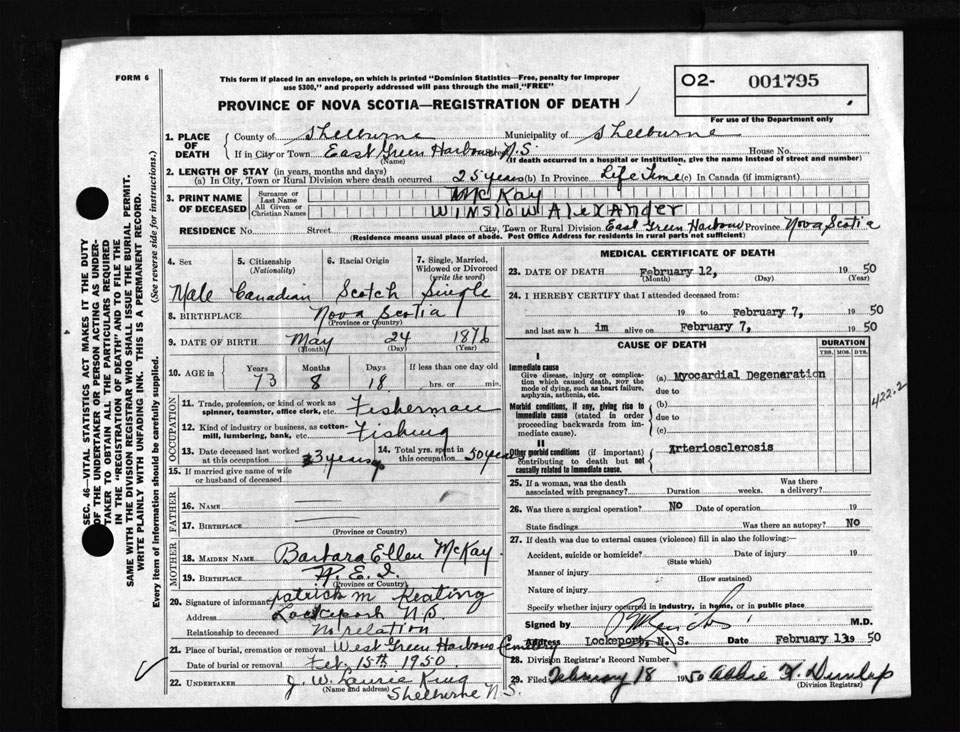 FORM 6
This form if placed in an envelope, on which is printed "Dominion Statistics—Free, penalty for improper
use $300," and properly addressed will pass through the mail "FREE"
O2- 001795
For use of the Department only
PROVINCE OF NOVA SCOTIA—REGISTRATION OF DEATH
SEC. 46—VITAL STATISTICS ACT MAKES IT THE DUTY
OF THE UNDERTAKER OR PERSON ACTING AS UNDER-
TAKER TO OBTAIN ALL THE PARTICULARS REQUIRED
IN THE "REGISTRATION OF DEATH" AND TO FILE THE
SAME WITH THE DIVISION REGISTRAR WHO SHALL ISSUE THE BURIAL PERMIT.
WRITE PLAINLY WITH UNFADING INK. THIS IS A PERMANENT RECORD.
Every item of information should be carefully supplied. (See reverse side for instructions.)
1. PLACE OF DEATH County of Shelburne Municipality of Shelburne
If in City or Town East Green Harbour N.S. House No.
(Name) (If death occurred in a hospital or institution, give the name instead of street and number)
2. LENGTH OF STAY (in years, months and days)
(a) In City, Town or Rural Division where death occurred 25 years (b) In Province Life Time (c) In Canada (if immigrant)
3. PRINT NAME OF DECEASED Surname or Last Name McKay
All Given or Christian Names WINSLOW AlexANder
RESIDENCE No. Street City, Town or Rural Division East Green Harbour Province Nova Scotia
(Residence means usual place of abode. Post Office Address for residents in rural parts not sufficient)
4. Sex 5. Citizenship (Nationality) 6. Racial Origin 7. Single, Married, Widowed or Divorced (write the word)
Male Canadian Scotch Single
8. BIRTHPLACE Nova Scotia
(Province or Country)
9. DATE OF BIRTH May 24 1876
(Month) (Day) (Year)
10. AGE in Years Months Days If less than one day old
73 8 18 hrs. or min.
OCCUPATION
11. Trade, profession, or kind of work as spinner, teamster, office clerk, etc. Fisherman
12. Kind of industry or business, as cotton-mill, lumbering, bank, etc. Fishing
13. Date deceased last worked at this occupation 3 years 14. Total yrs. spent in this occupation 50 years
15. If married give name of wife or husband of deceased
FATHER
16. Name —
17. Birthplace —
(Province or Country)
MOTHER
18. MAIDEN NAME Barbara Ellen McKay
19. BIRTHPLACE P.E.I.
(Province or Country)
20. Signature of informant Patrick M Keating
Address Lockeport N S
Relationship to deceased No relation
21. Place of burial, cremation or removal West Green Harbour Cemetery
Date of burial or removal Feb. 15th 1950
22. UNDERTAKER J. W. Laurie King
(Name and address) Shelburne N S.
MEDICAL CERTIFICATE OF DEATH
23. DATE OF DEATH February 12, 19 50
(Month) (Day) (Year)
24. I HEREBY CERTIFY that I attended deceased from:
19 to February 7, 19 50
and last saw h im alive on February 7, 19 50
CAUSE OF DEATH DURATION
YRS. MOS. DYS.
I
Immediate cause
Give disease, injury or complication which caused death, NOT the mode of dying, such as heart failure, asphyxia, asthenia, etc.
(a) Myocardial Degeneration
due to
Morbid conditions, if any, giving rise to immediate cause (stated in order proceeding backwards from immediate cause).
(b)
due to
(c)
422.2
II
Other morbid conditions (if important) contributing to death but not causally related to immediate cause.
Arteriosclerosis
25. If a woman, was the death associated with pregnancy? Duration weeks. Was there a delivery?
26. Was there a surgical operation? No Date of operation 19
State findings Was there an autopsy? No
27. If death was due to external causes (violence) fill in also the following:—
Accident, suicide or homicide? Date of injury 19
(State which)
Manner of injury
(How sustained)
Nature of injury
Specify whether injury occurred in industry, in home, or in public place
Signed by M.D.
Address Lockeport, N. S. Date February 13 19 50
28. Division Registrar's Record Number
29. Filed February 18 1950 Abbie Dunlap
(Division Registrar)